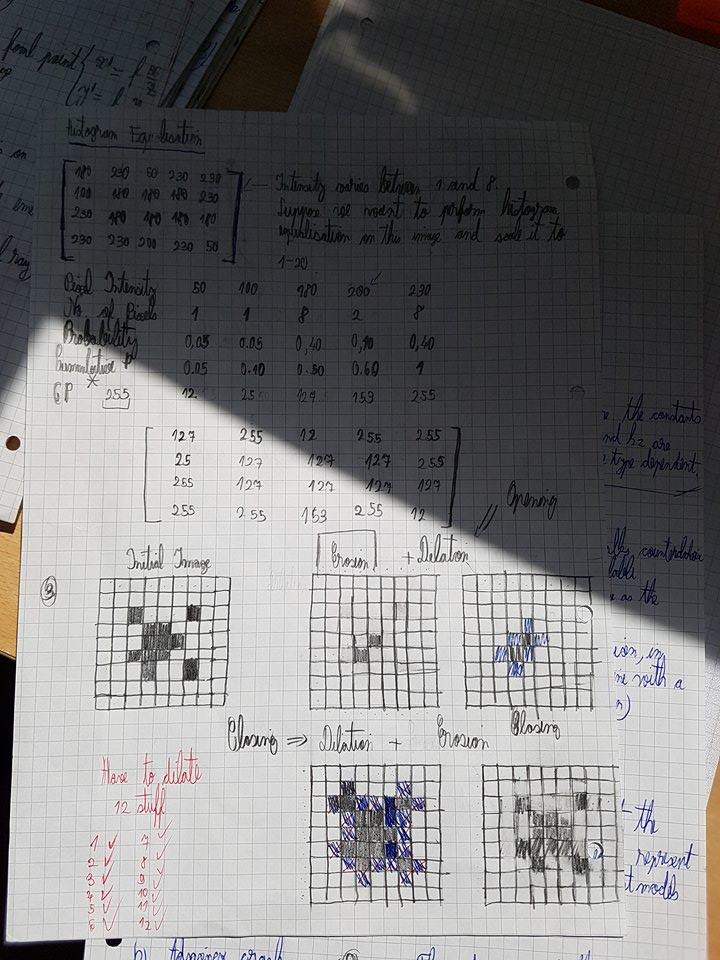 focal point { x' = f x/z
y' = f
Histogram Equalisation
180 230 50 230 230
100 180 180 180 230
230 180 180 180 180
230 230 200 230 50
Intensity varies between 1 and 8.
Suppose we want to perform histogram
equalisation on this image and scale it to
1-20.
Pixel Intensity 50 100 180 200 230
No. of Pixels 1 1 8 2 8
Probability 0,05 0.05 0,40 0,10 0,40
Cumulative P 0.05 0.10 0.50 0.60 1
CP * 255 12 25 127 153 255
127 255 12 255 255
25 127 127 127 255
255 127 127 127 127
255 255 153 255 12
Opening
Initial Image
Erosion + Dilation
3
Closing => Dilation + Erosion
Closing
Have to dilate
12 stuff
1 ✓ 7 ✓
2 ✓ 8 ✓
3 ✓ 9 ✓
4 ✓ 10 ✓
5 ✓ 11 ✓
6 ✓ 12 ✓
the constants
are
type dependent.
as the
in
with a
the
represent
models
b)